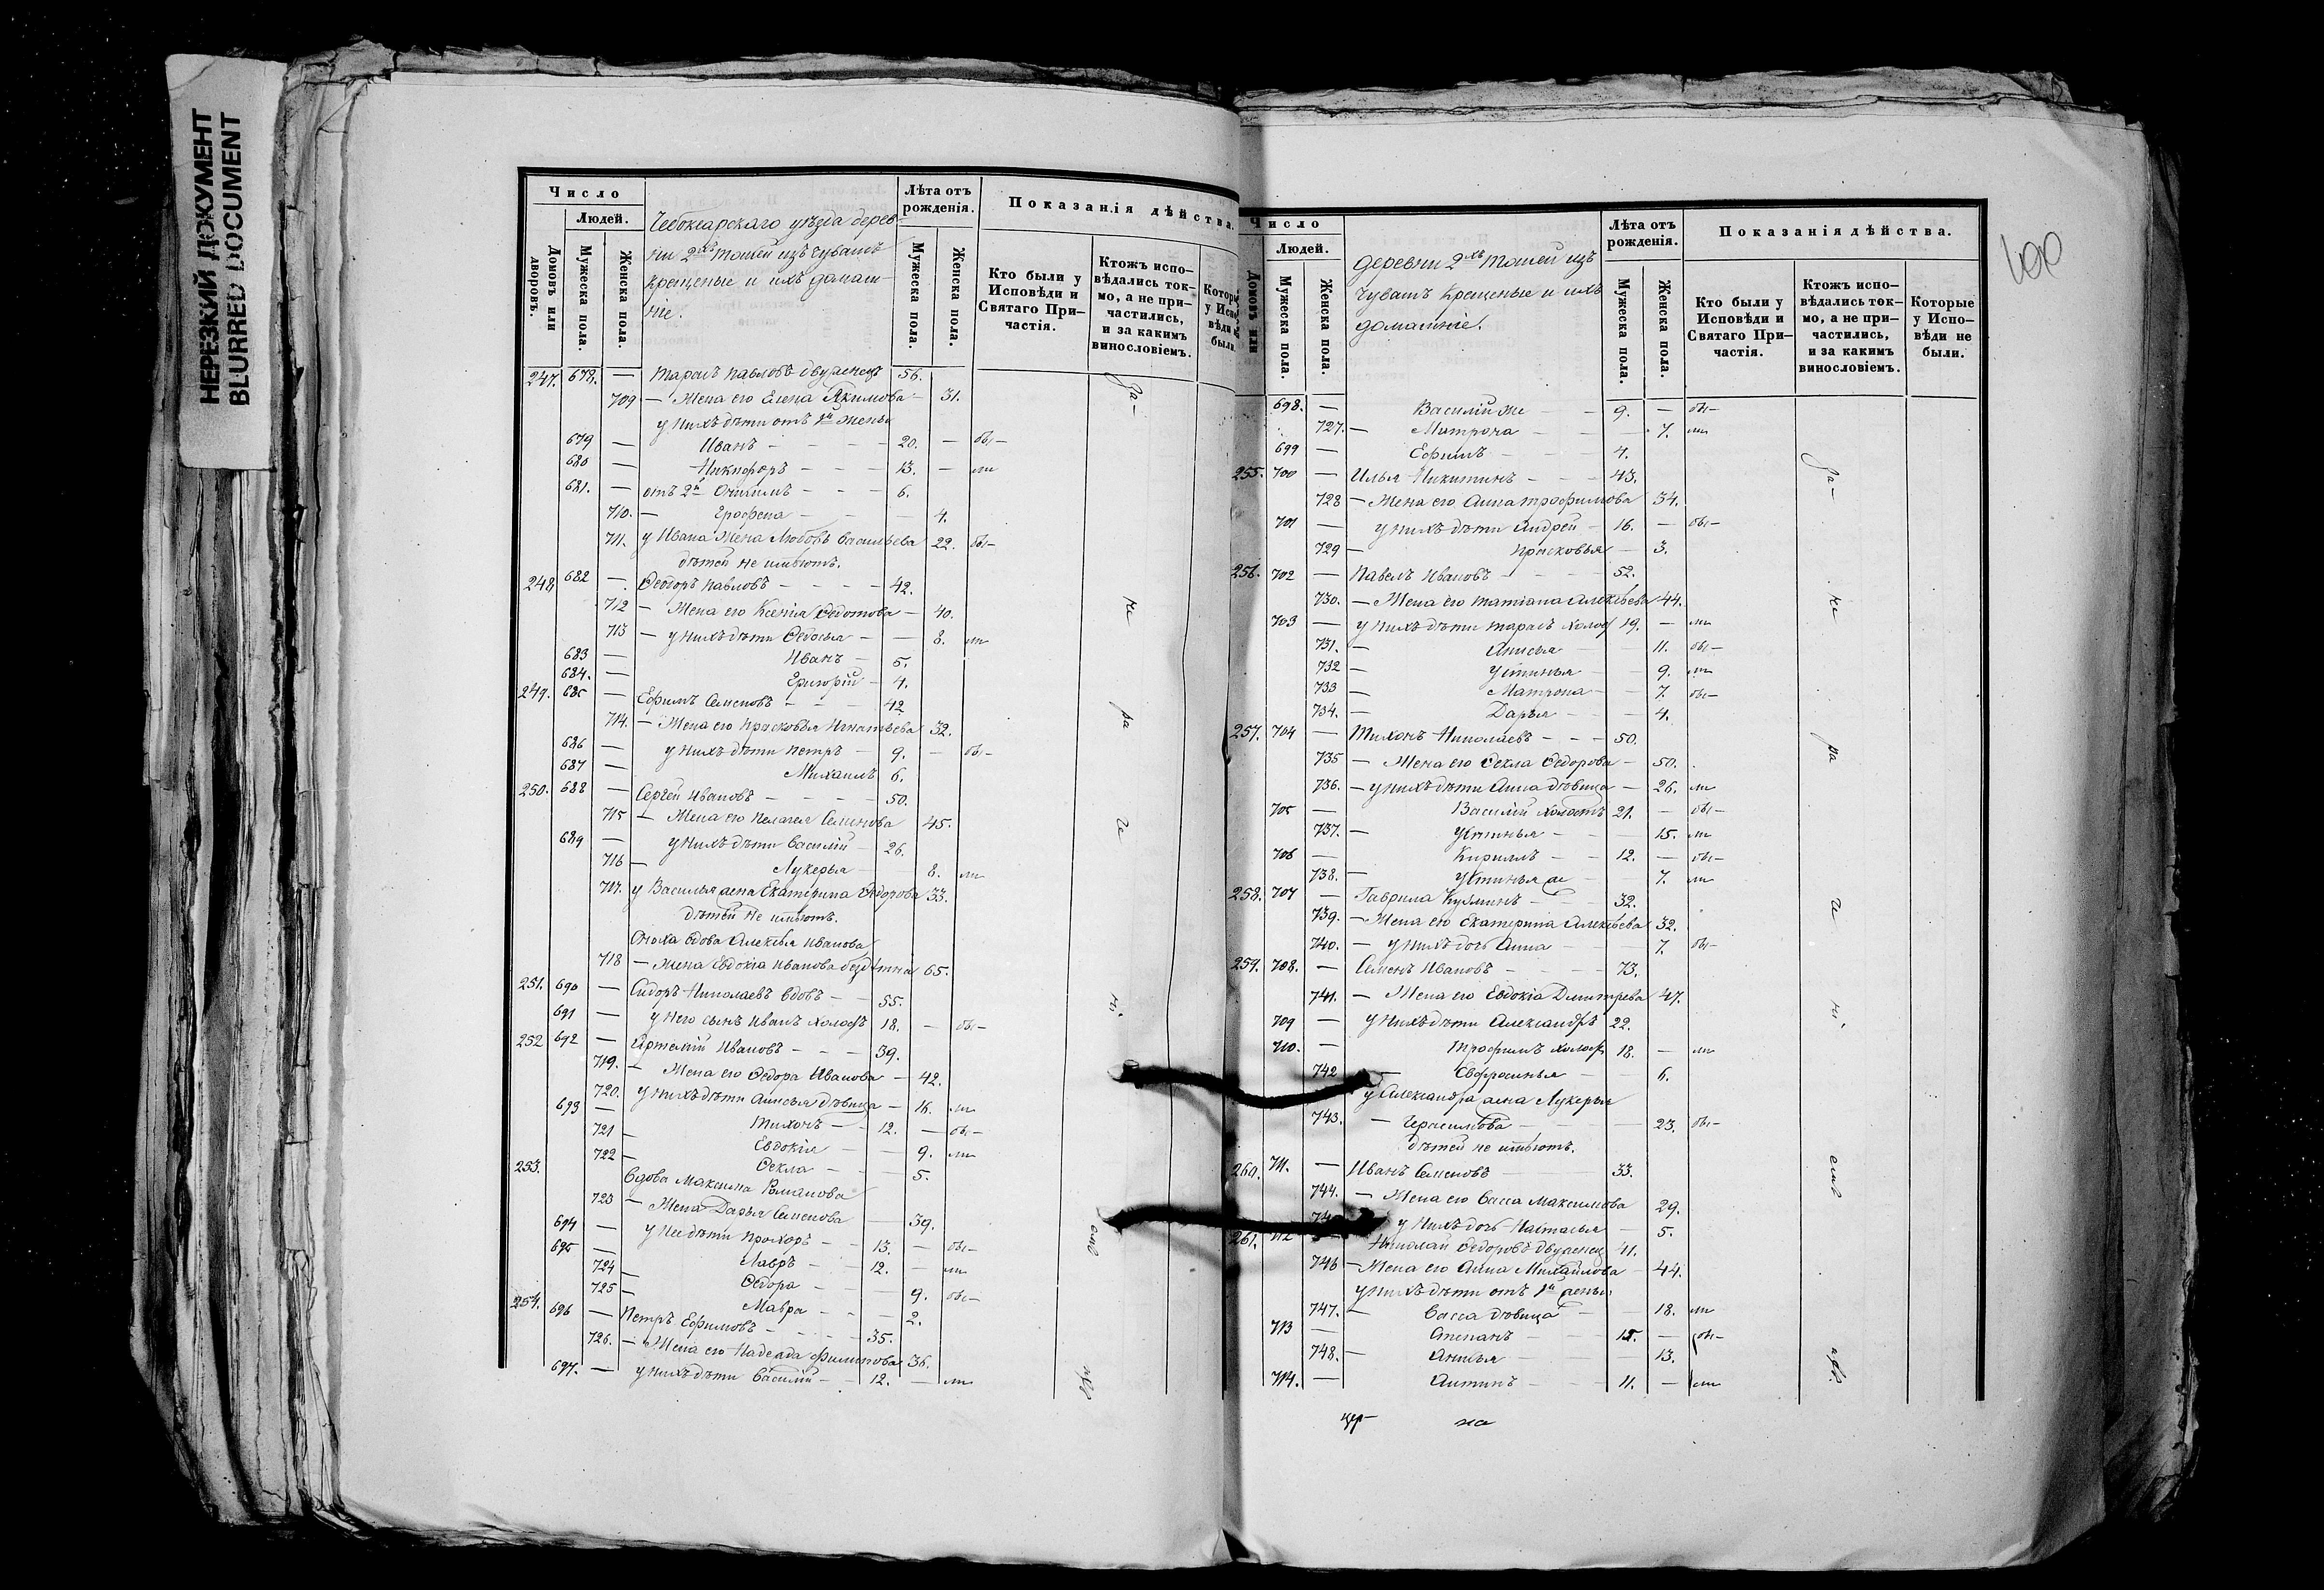 НЕРЕЗКИЙ ДОКУМЕНТ
BLURRED DOCUMENT
Число
Людей.
Домовъ или дворовъ.
Мужеска пола.
Женска пола.
Чебоксарскаго уѣзда дерев-
ни 2хъ Тошей изъ чувашъ
крещеные и ихъ домаш-
ніе.
Лѣта отъ рожденія.
Мужеска пола.
Женска пола.
Показанія дѣйства.
Кто были у Исповѣди и Святаго При-частія.
Ктожъ испо-вѣдались ток-мо, а не при-частились, и за какимъ винословіемъ.
247. 678. — Тарасъ Павловъ двуженецъ 56.
709 — Жена его Елена Якимова — 31.
у нихъ дѣти отъ 1й жены
679 — Иванъ — 20. — бы-
680 — Никифоръ — 13. — ли
681. — отъ 2й 6.
710. — Графена — 4.
711. у Ивана жена Любовь Васильева 22. бы-
дѣтей не имѣютъ.
248 682 — Ѳеодоръ Павловъ — 42.
712 — Жена его Ксенія Ѳедотова — 40.
713 — у нихъ дѣти Ѳедосья — 8. ли
683 — Иванъ — 5.
684. — Григорій — 4.
249. 685 — Ефимъ Семеновъ — 42
714. — Жена его Прасковья Игнатьева 32.
686 — у нихъ дѣти Петръ — 9. — бы-
687 — Михаилъ 6.
250. 688 — Сергей Ивановъ — 50.
715 — Жена его Пелагея Семенова 45.
689 — у нихъ дѣти Василій — 26.
716 — Лукерья — 8. ли
717. у Василья жена Екатерина Ѳедорова 33.
дѣтей не имѣютъ.
Сноха вдова Алексѣя Иванова
718 — Жена Евдокія Иванова бездѣтна 65.
251. 690 — Сидоръ Николаевъ вдовъ — 55.
691 — у него сынъ Иванъ холостъ 18. — бы-
252 692 — Артемій Ивановъ — 39.
719. — Жена его Ѳедора Иванова — 42.
720. у нихъ дѣти Анисья дѣвица — 16. ли
693 — Тихонъ — 12. — бы-
721 — Евдокія — 9. ли
722 — Ѳекла — 5.
253. Вдова Максима Романова
723 — Жена Дарья Семенова — 39.
694 — у нее дѣти Прохоръ — 13. — бы-
695 — Лавръ — 12. — ли
724 — Ѳедора — 9. бы-
725 — Мавра — 2.
254. 696 — Петръ Ефимовъ — 35.
726. — Жена его Надежда Филипова 36.
697. — у нихъ дѣти Василій — 12. — ли
За-
не
ра
че
ні
емъ
Число
Людей.
Домовъ или
Мужеска пола.
Женска пола.
деревни 2хъ Тошей изъ
чувашъ крещеные и ихъ
домашніе.
Лѣта отъ рожденія.
Мужеска пола.
Женска пола.
Показанія дѣйства.
Кто были у Исповѣди и Святаго При-частія.
Ктожъ испо-вѣдались ток-мо, а не при-частились, и за какимъ винословіемъ.
Которые у Испо-вѣди не были.
698. — Василій же — 9. — бы-
727. — Матрона — 7. ли
699 — Ефимъ — 4.
255. 700 — Илья Никитинъ — 43.
728 — Жена его Анна Трофимова 34.
701 — у нихъ дѣти Андрей — 16. — бы-
729 — Прасковья — 3.
256. 702 — Павелъ Ивановъ — 52.
730. — Жена его Татіана Алексѣева 44.
703 — у нихъ дѣти Тарасъ холос 19. — ли
731. — Анисья — 11. бы-
732 — Устинья — 9. ли
733 — Матрона — 7. бы-
734. — Дарья — 4.
257. 704 — Тихонъ Николаевъ — 50.
735 — Жена его Ѳекла Ѳедорова — 50.
736. — у нихъ дѣти Анна дѣвица — 26. ли
705 — Василій холостъ 21. — бы-
737. — Устинья — 15. ли
706 — Кириллъ — 12. — бы-
738. — Устинья же — 7. ли
258. 707 — Гаврила Кузминъ — 32.
739. — Жена его Екатерина Алексѣева 32.
740. — у нихъ дочь Анна — 7. бы-
259. 708. — Семенъ Ивановъ — 73.
741. — Жена его Евдокіа Дмитрева 47.
709 — у нихъ дѣти Александръ 22.
710. — Трофимъ холос 18. — ли
742 — Евфросинья — 6.
у Александра жена Лукерья
743. — Герасимова — 23. бы-
дѣтей не имѣютъ.
260. 711. — Иванъ Семеновъ — 33.
744. — Жена его Васса Максимова 29.
у нихъ дочь Настасья — 5.
261. 712 Николай Ѳедоровъ двуженец 41.
746 — Жена его Анна Михайлова — 44.
у нихъ дѣти отъ 1й жены
747. — Васса дѣвица — 18. ли
713 — Степанъ — 15. — бы-
748. — Анисья — 13.
714. — Антипъ — 11. — ли
За-
не
ра
че
ні
емъ
цер- на